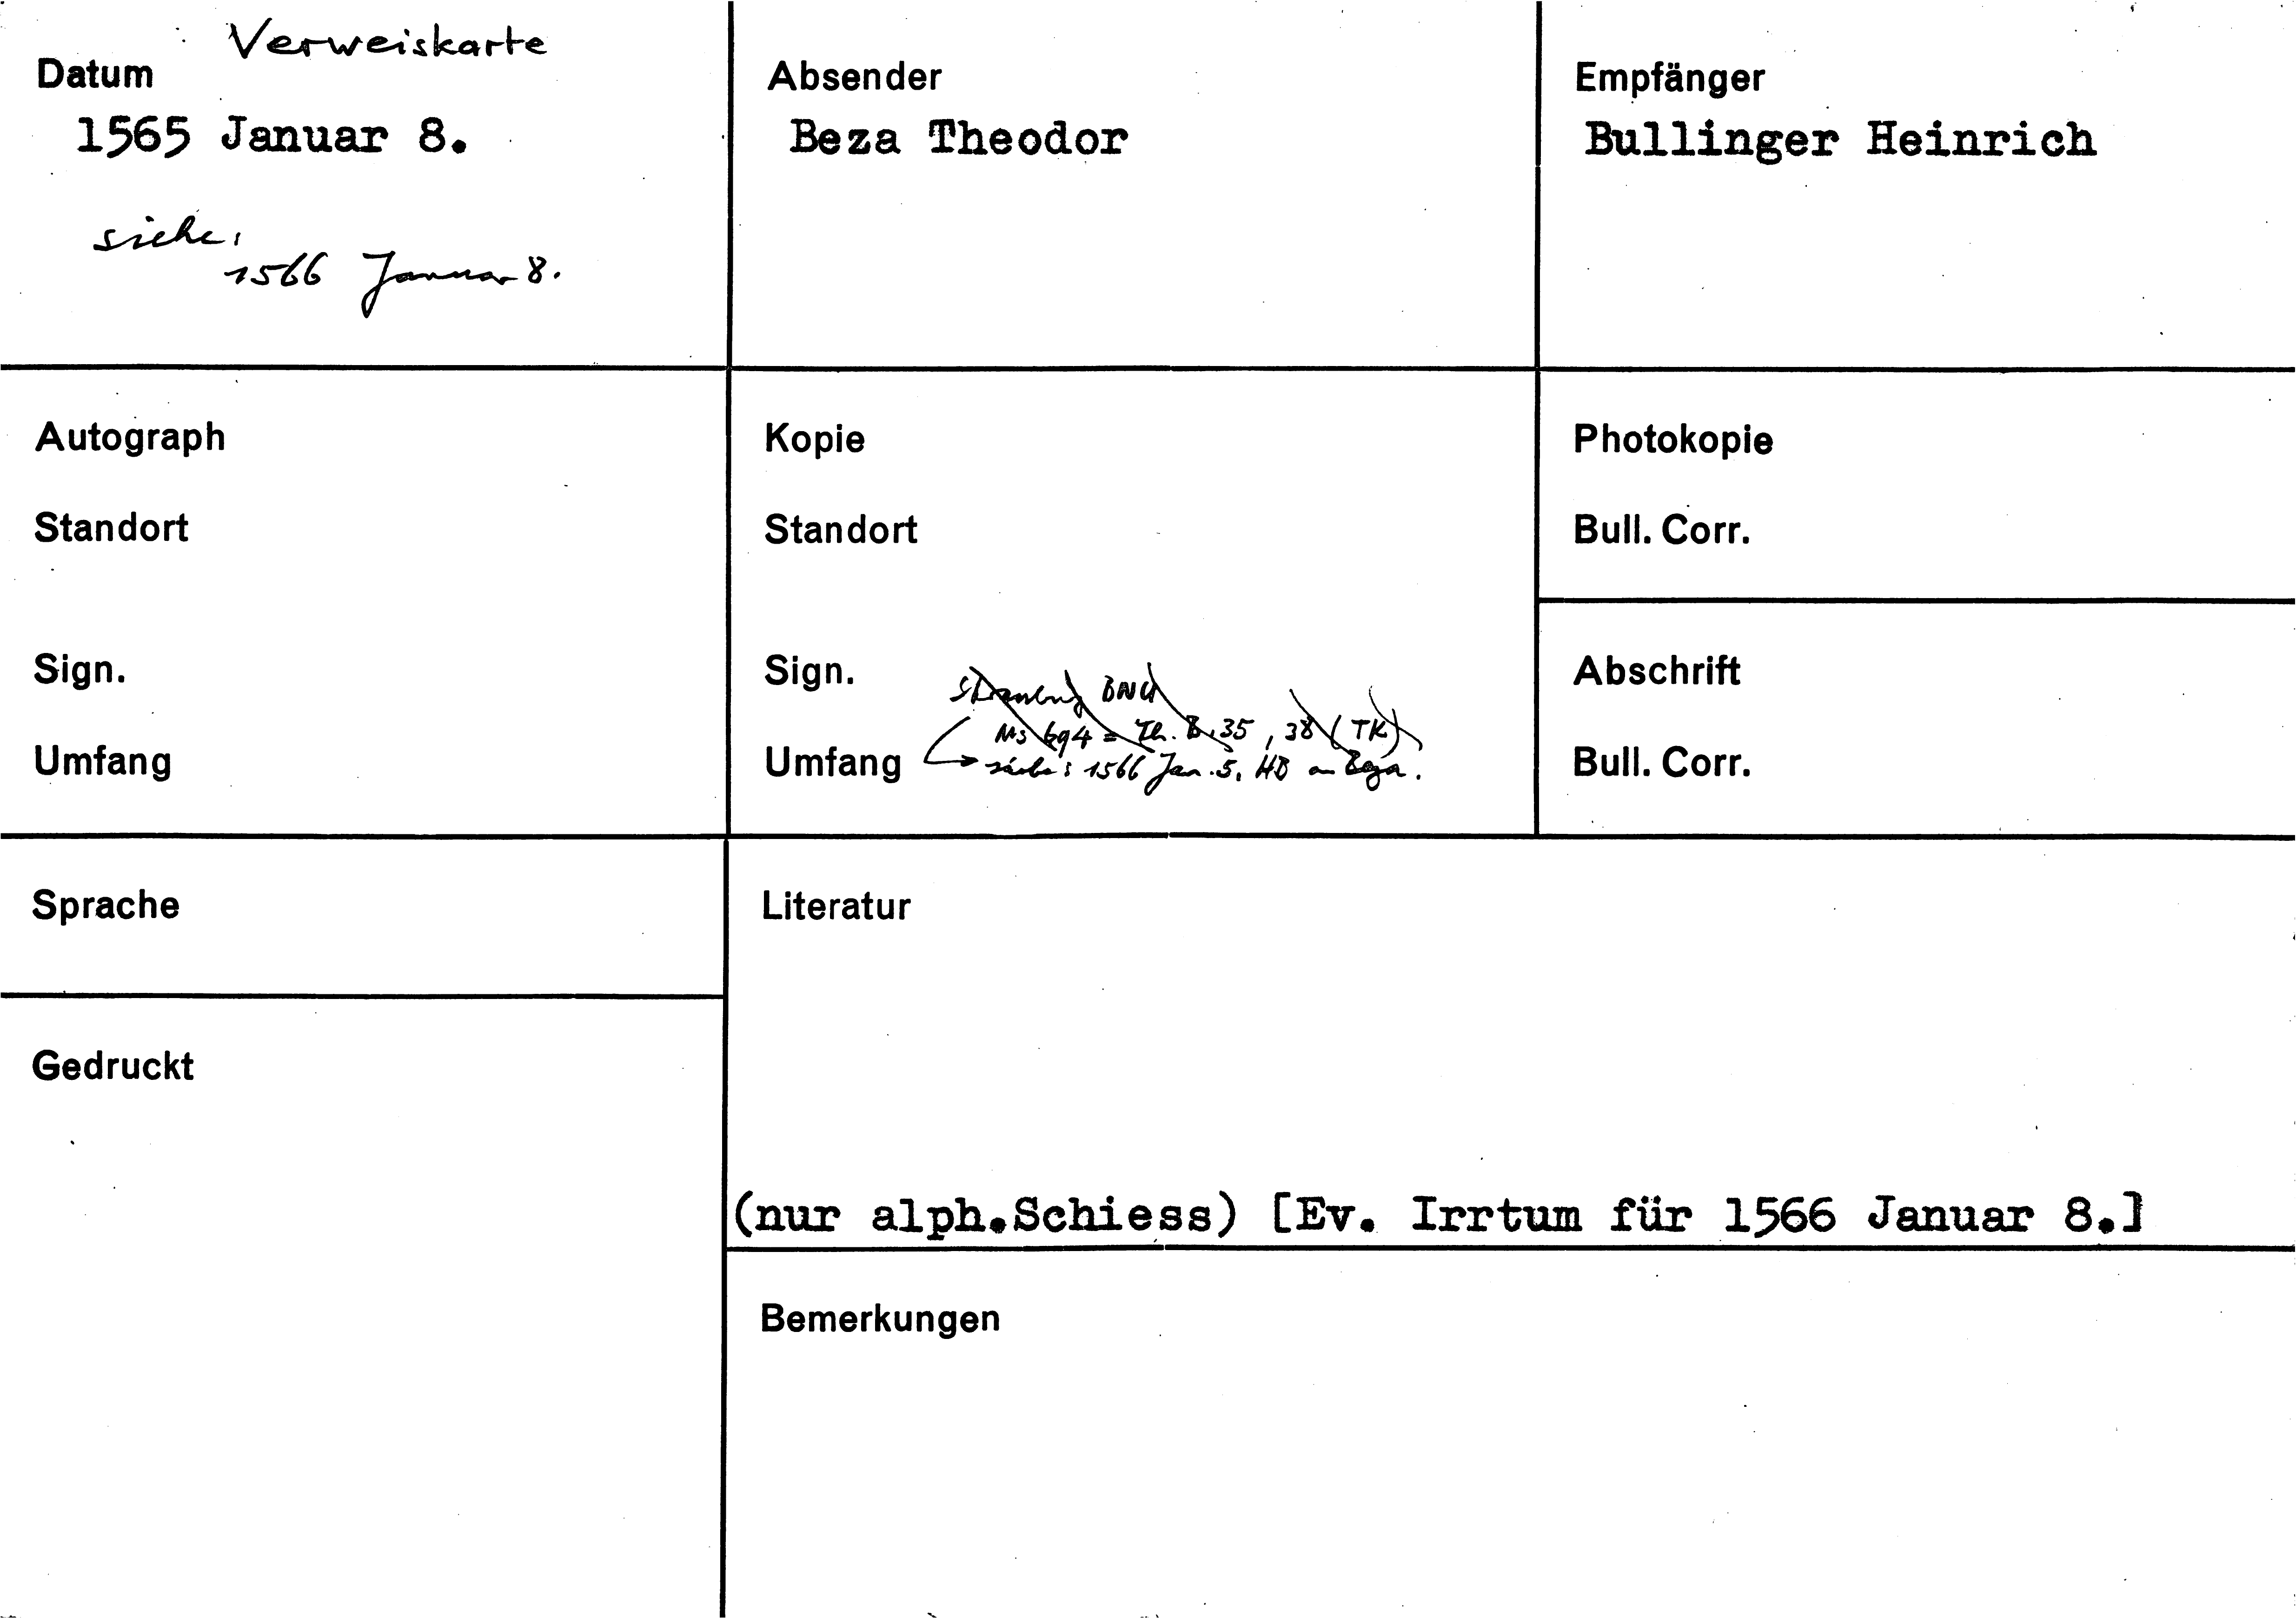 Verweiskarte
Datum
1565 Januar 8.
siehe:
1566 Januar 8.
Absender
Beza Theodor
Empfänger
Bullinger Heinrich
Autograph
Standort
Sign.
Umfang
Kopie
Standort
Sign.
Strassburg BNU
Ms 694 = Th. B. 35, 38 (TK)
Umfang
siehe: 1566 Jan. 5, HB an Beza.
Photokopie
Bull. Corr.
Abschrift
Bull. Corr.
Sprache
Gedruckt
Literatur
(nur alph.Schiess) [Ev. Irrtum für 1566 Januar 8.]
Bemerkungen